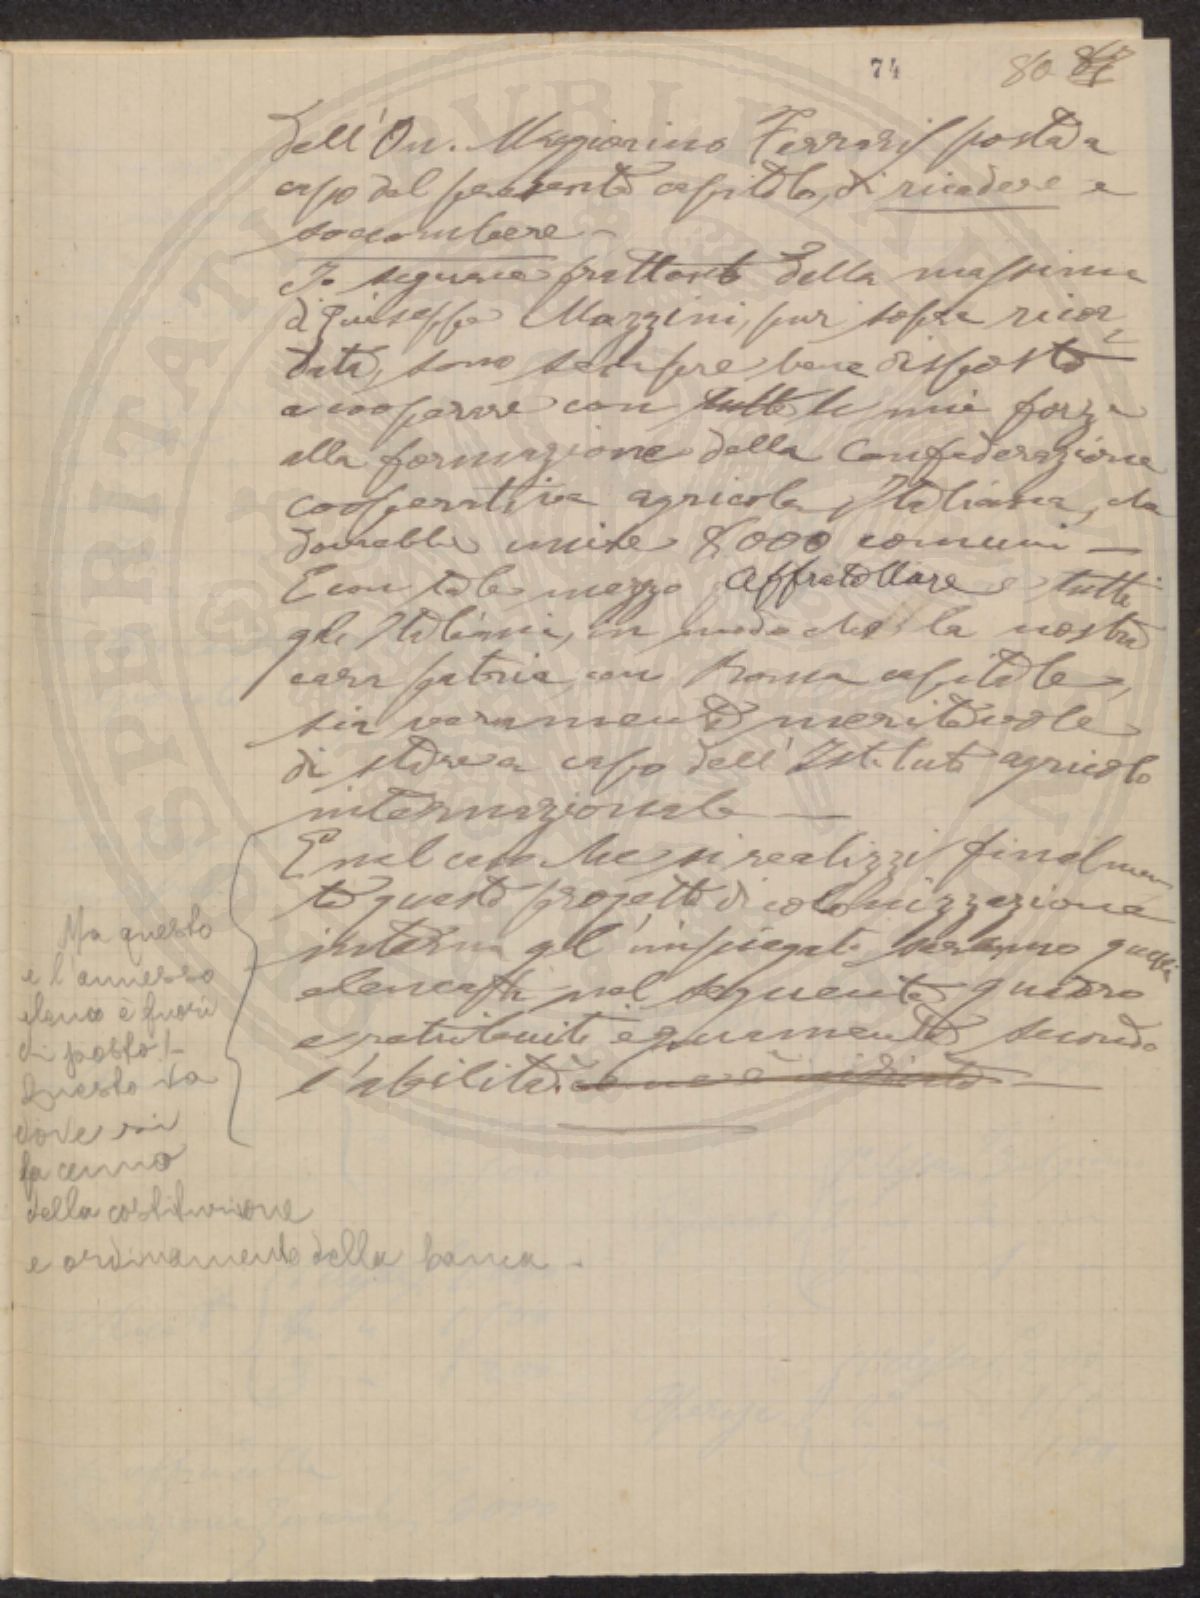 74
80
dell'On. Maggiorino Ferraris posta a
capo del presente capitolo, di ricadere e
soccombere –
Io seguace frattanto della massima
di Giuseppe Mazzini, pur sopra ricor
data, sono sempre bene disposto
a cooperare con tutte le mie forze
alla formazione della Confederazione
cooperativa agricola Italiana, che
dovrebbe unire 8000 comuni –
E con tale mezzo affratellare tutti
gli Italiani, in modo che la nostra
cara patria con Roma capitale,
sia veramente meritevole
di stare a capo dell'Istituto agricolo
internazionale –
E nel caso che si realizzi finalmen
te questo progetto di colonizzazione
interna gl'impiegati saranno quelli
elencati nel seguente quadro
e retribuiti equamente secondo
l'abilità
Ma questo
e l'annesso
elenco è fuori
di posto! –
Questo va
dove si
fa cenno
della costituzione
e ordinamento della banca –